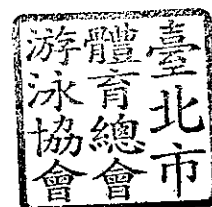 臺北市
體育總會
游泳協會